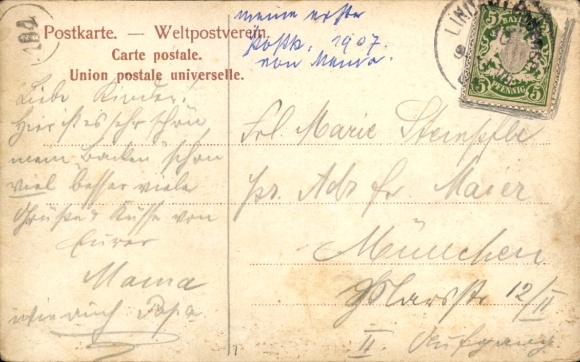 meine erste
Postk. 1907.
von Mama.
Postkarte. — Weltpostverein.
Carte postale.
Union postale universelle.
BAYERN
5 5
PFENNIG
Liebe Kinder!
Hier ist es sehr schön
mein Backen schon
viel besser viele
Grüße & Küsse von
Eurer
Mama
wie auch Papa
Frl. Marie
pr. Adr. Fr. Maier
München
Marsstr 12/II
II. Aufgang